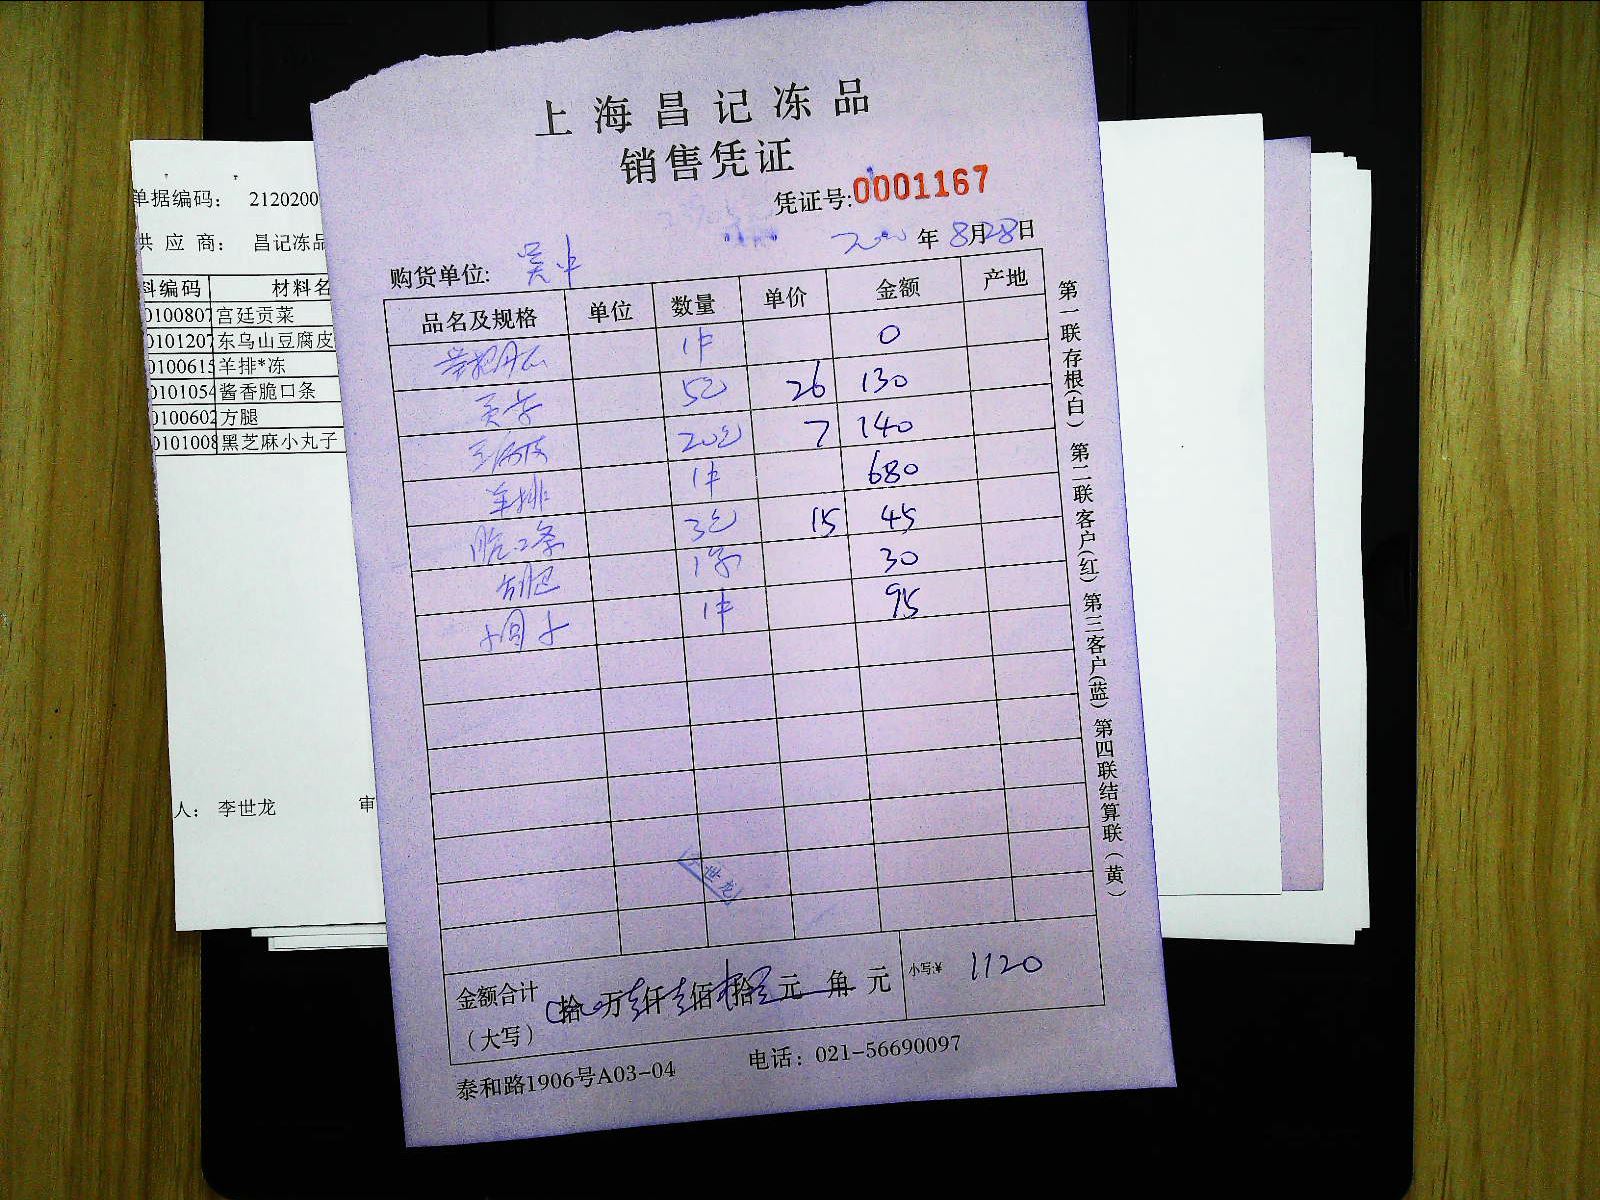 上海昌记冻品
销售凭证
凭证号:0001167
年8月28日
购货单位: 吴中
品名及规格 单位 数量 单价 金额 产地
1件 0
5包 26 130
20包 7 140
羊排 1件 680
脆口条 3包 15 45
方腿 1 30
小圆子 1件 95
金额合计
(大写)
拾 万壹仟壹佰 拾 元 角 元
小写:¥ 1120
泰和路1906号A03-04 电话: 021-56690097
第一联存根(白) 第二联客户(红) 第三客户(蓝) 第四联结算联(黄)
世龙
单据编码: 2120200
供 应 商: 昌记冻品
料编码 材料名
0100807 宫廷贡菜
0101207 东乌山豆腐皮
0100615 羊排*冻
0101054 酱香脆口条
0100602 方腿
0101008 黑芝麻小丸子
人: 李世龙 审